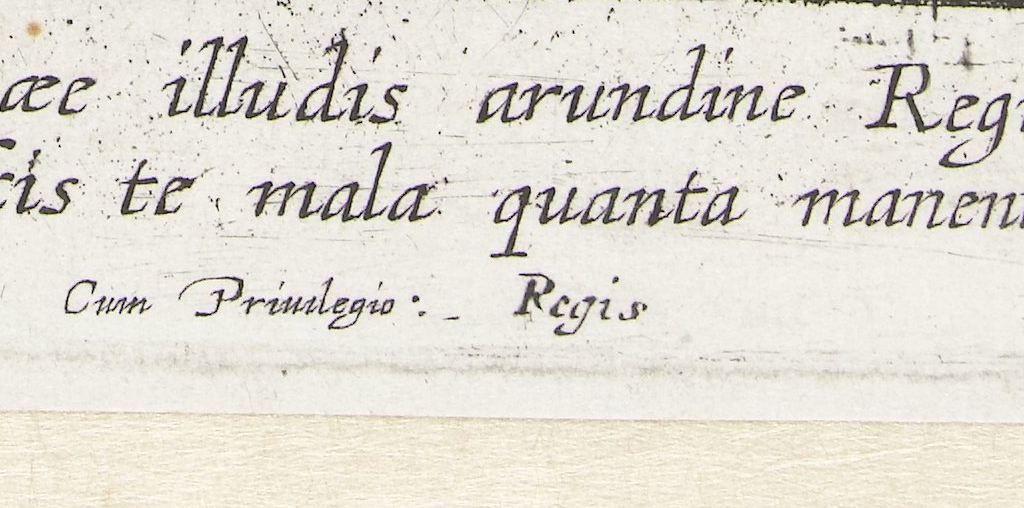 æe illudis arundine Regi
cis te mala quanta manen
Cum Priuilegio :. _ Regis